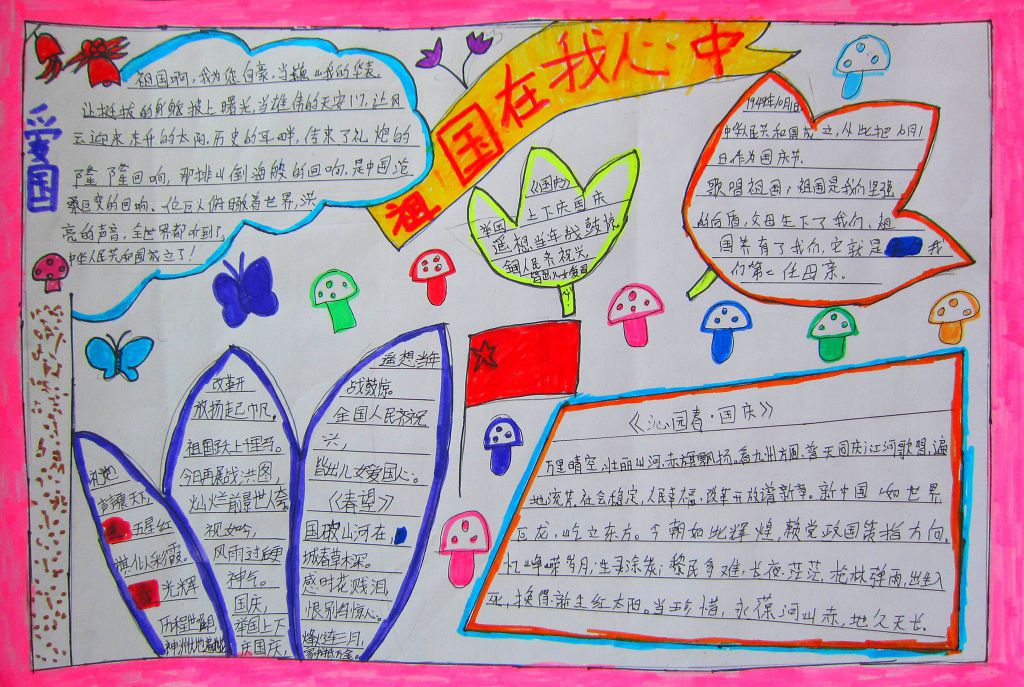 祖国在我心中
爱国
祖国啊,我为您自豪,当巍峨的华表,
让挺拔的身躯披上曙光,当雄伟的天安门,让风
云迎来东升的太阳,历史的耳畔,传来了礼炮的
隆隆回响,那排山倒海般的回响,是中国沧
桑巨变的回响、位巨人俯瞰着世界,洪
亮的声音,全世界都听到了,
中华人民共和国成立了!
《国庆》
举国上下庆国庆
遥想当年战鼓惊,
全国人民齐祝兴
皆出儿女爱国
1949年10月1日,
中华人民共和国成立,从此把10月1
日作为国庆节.
歌唱祖国,祖国是我们坚强
的后盾,父母生下了我们,祖
国养育了我们,它就是我
们第二任母亲.
礼炮
声震天下,
五星红
旗似彩霞。
光辉
历程世瞩目
改革开
放扬起已帆,
祖国跃上千里马。
今日再展战洪图,
灿烂前景世人夸。
祝如今,
风雨过后更
神气。
国庆,
举国上下
庆国庆,
遥想当年
战鼓惊。
全国人民齐祝
兴,
皆出儿女爱国心。
《春望》
国破山河在,
城春草木深。
感时花溅泪,
恨别鸟惊心。
烽火连三月,
家书抵万金。
《沁园春·国庆》
万里晴空,壮丽山河,赤旗飘扬。看九州方圆,普天同庆;江河歌唱,遍
地流芳。社会稳定,人民幸福,改革开放谱新章。新中国,如世界
巨龙,屹立东方。今朝如此辉煌,赖党政国策指方向。
忆峥嵘岁月,生灵涂炭,黎民多难,长夜茫茫。枪林弹雨,出生入
死,换得新生红太阳。当珍惜,永葆河山赤,地久天长.